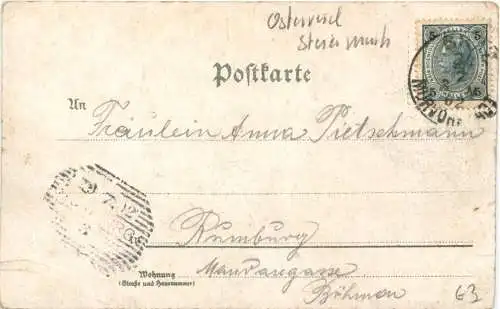 Österreich
Steiermark
Postkarte
An
Fräulein Anna Pietschmann
29 7 02
Rumburg
Wohnung
(Straße und Hausnummer)
Mandaugasse
Böhmen
63